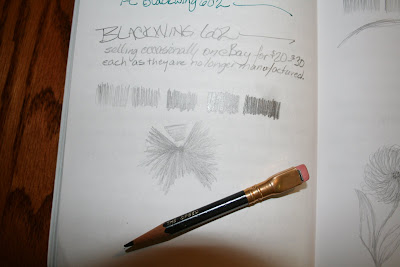 AC Blackwing 602
BLACKWING 602
selling occasionally on eBay for $20-$30
each as they are no longer manufactured.